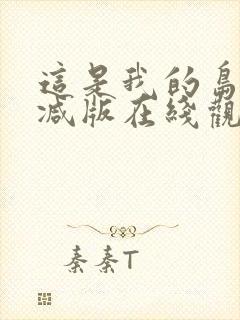 這是我的
減版在綫觀
秦秦T